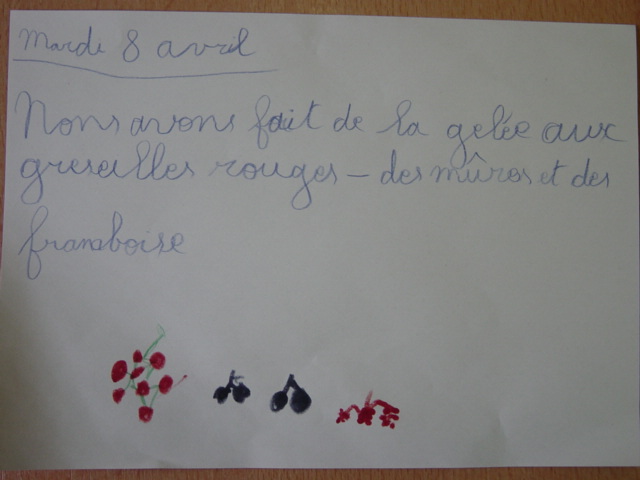 Mardi 8 avril
Nous avons fait de la gelée aux
greseilles rouges - des mûres et des
framboise